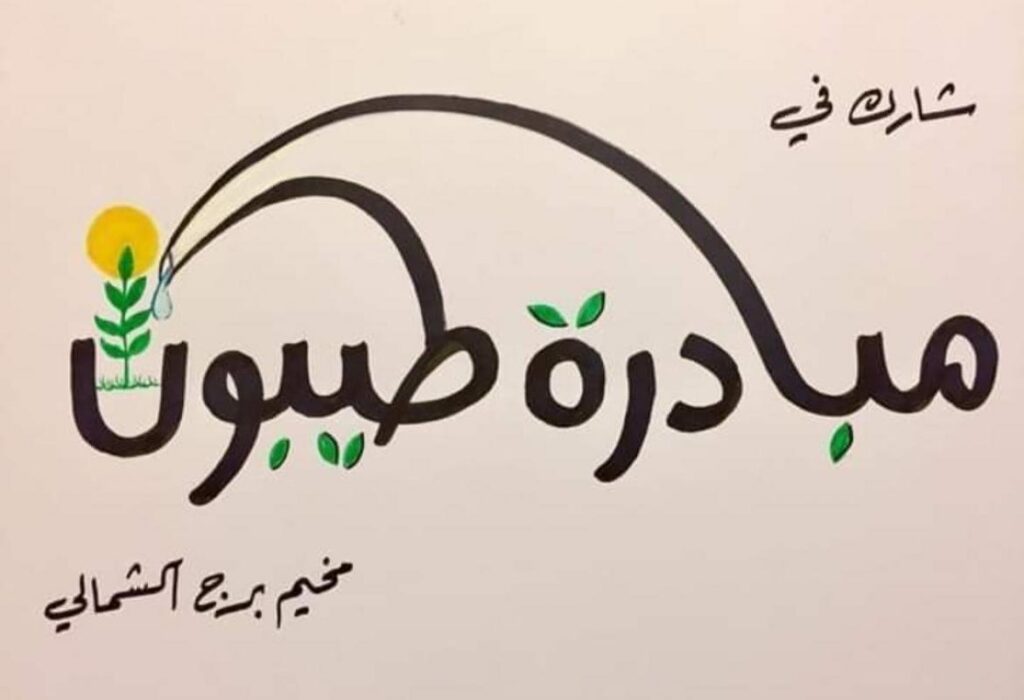 شارك في
مبادرة طيبون
مخيم برج الشمالي